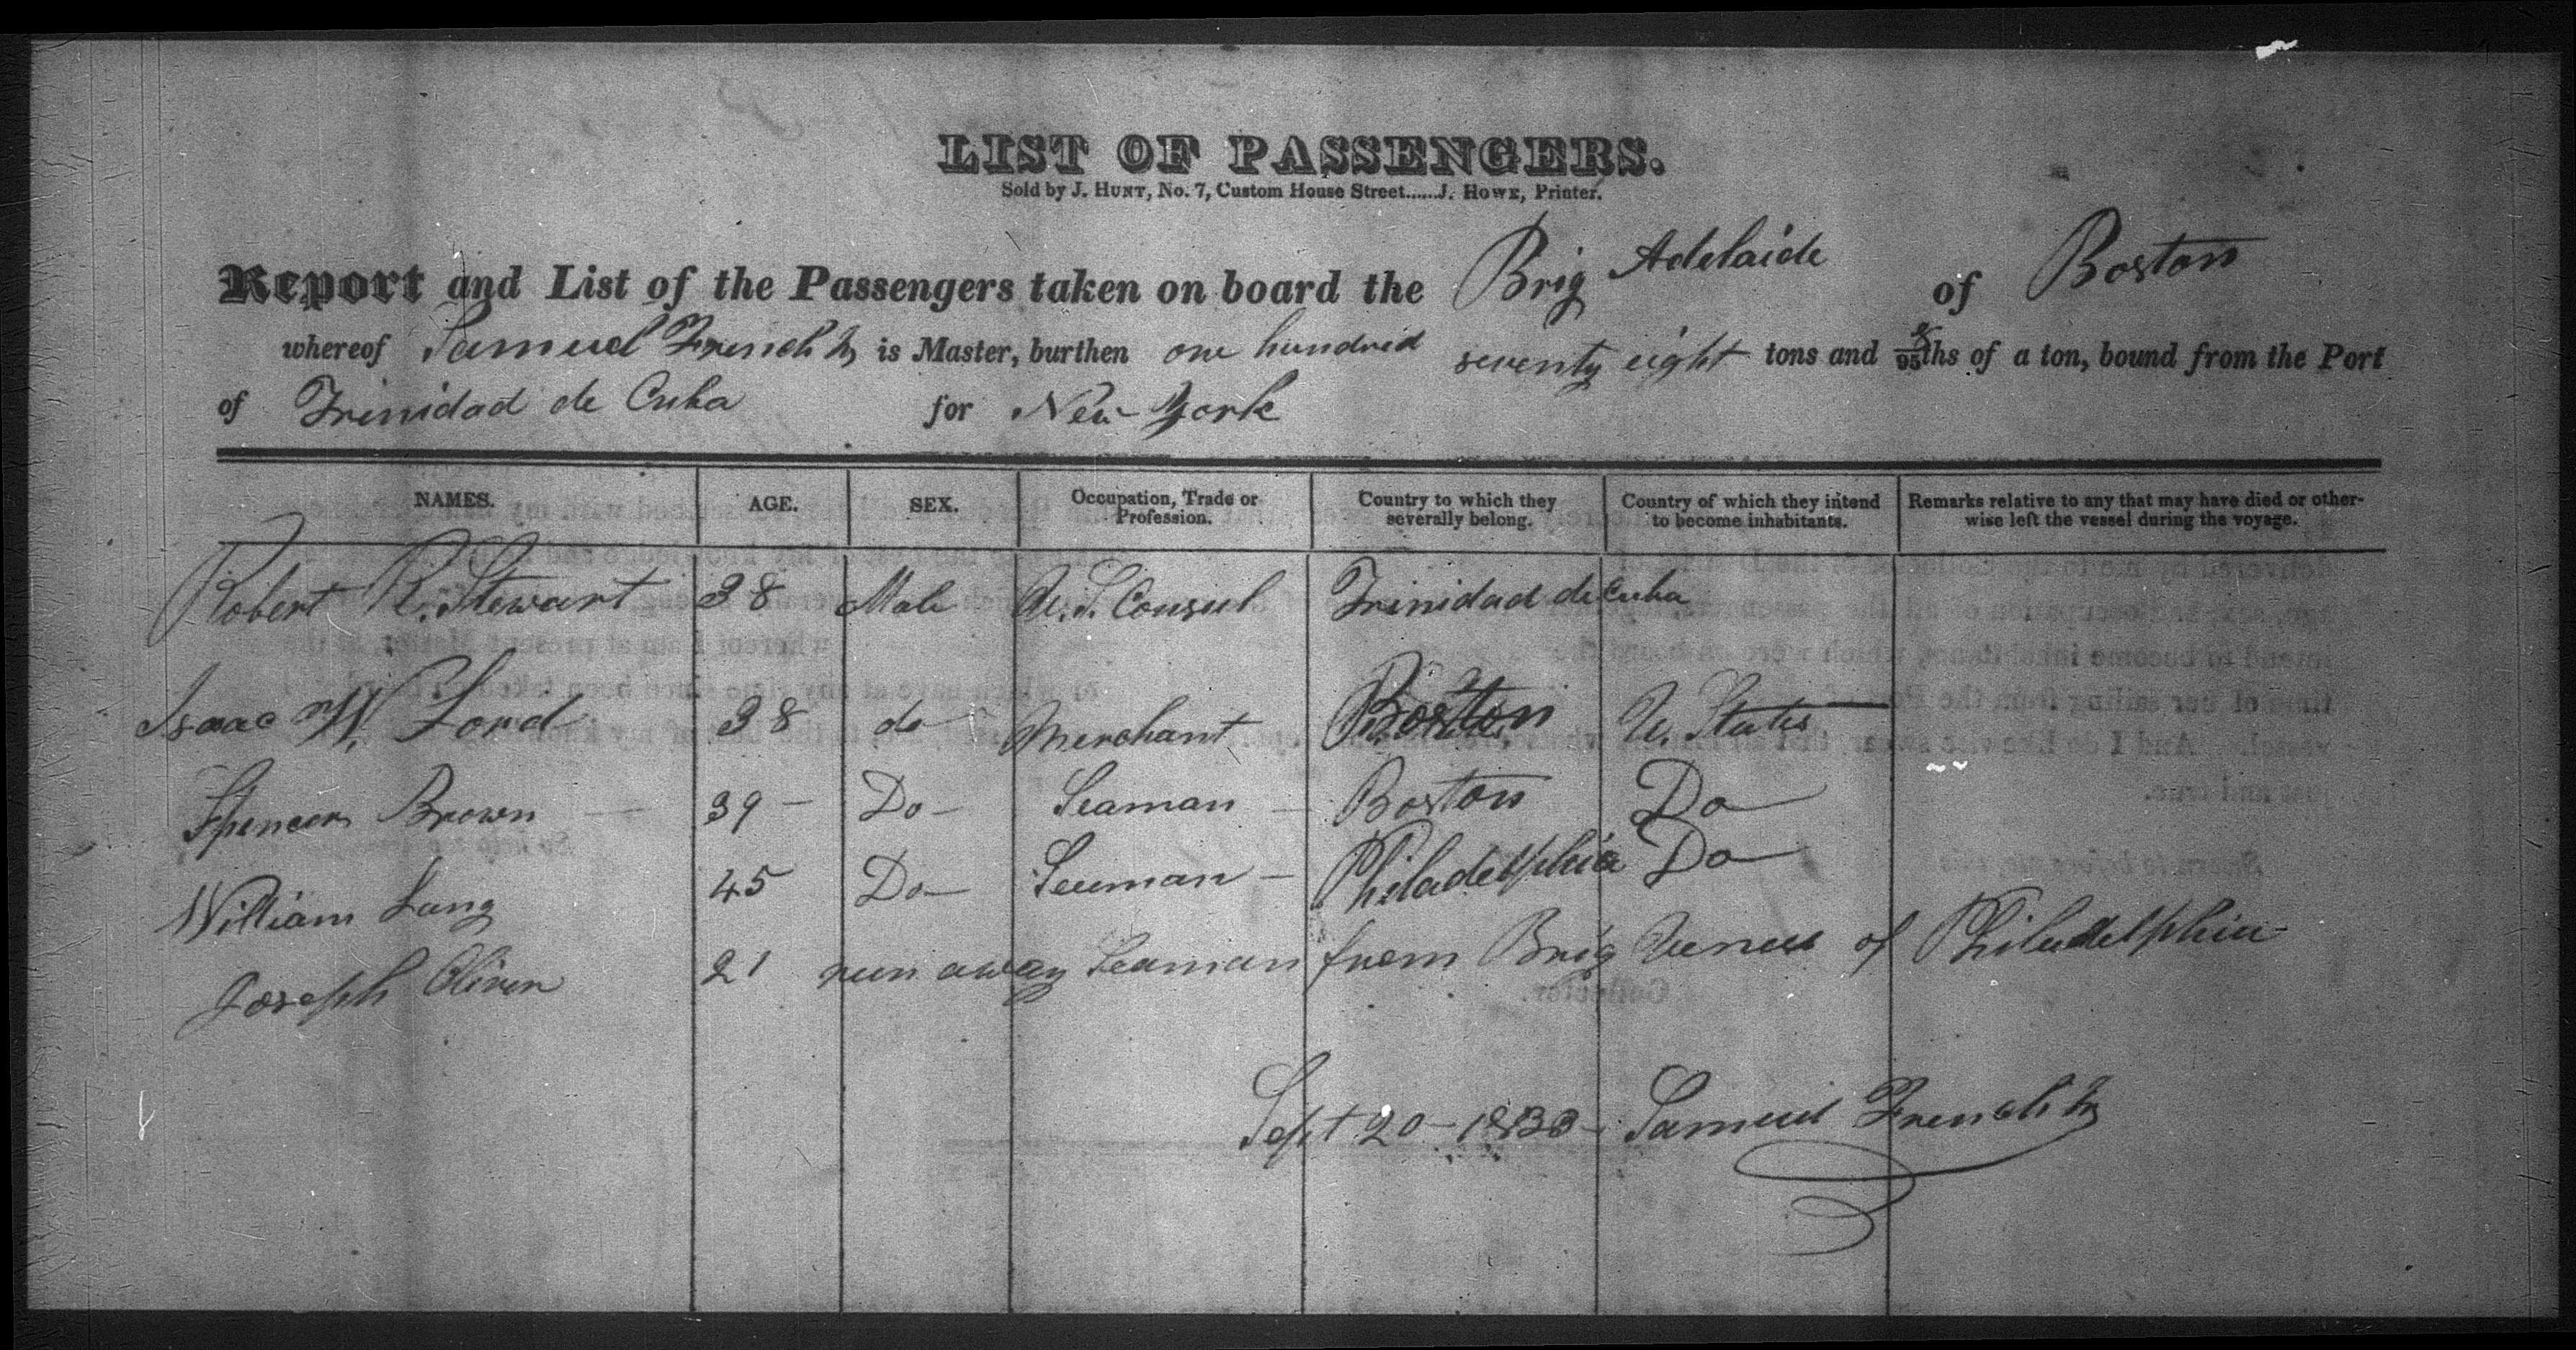 LIST OF PASSENGERS.
Sold by J. HUNT, No. 7, Custom House Street......J. HOWE, Printer.
Report and List of the Passengers taken on board the Brig Adelaide of Boston
whereof Samuel French Jr is Master, burthen one hundred seventy eight tons and /95ths of a ton, bound from the Port
of Trinidad de Cuba for New York
NAMES. AGE. SEX. Occupation, Trade or Profession. Country to which they severally belong. Country of which they intend to become inhabitants. Remarks relative to any that may have died or otherwise left the vessel during the voyage.
Robert R. Stewart 38 Male U.S. Consul Trinidad de Cuba
Isaac W. Lord 38 do Merchant Boston U. States
Spencer Brown 39 - Do - Seaman - Boston Do
William Lang 45 Do - Seaman - Philadelphia Do
Joseph Oliver 21 run away Seaman from Brig Venus of Philadelphia
Sept 20 - 1833 - Samuel French Jr